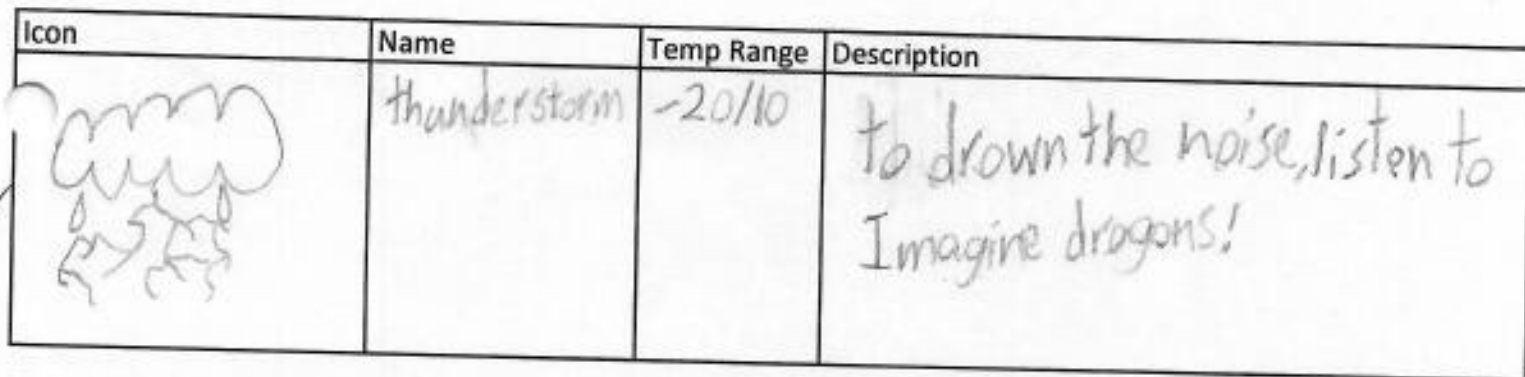 Icon Name Temp Range Description
thunderstorm -20/10 to drown the noise, listen to
Imagine dragons!